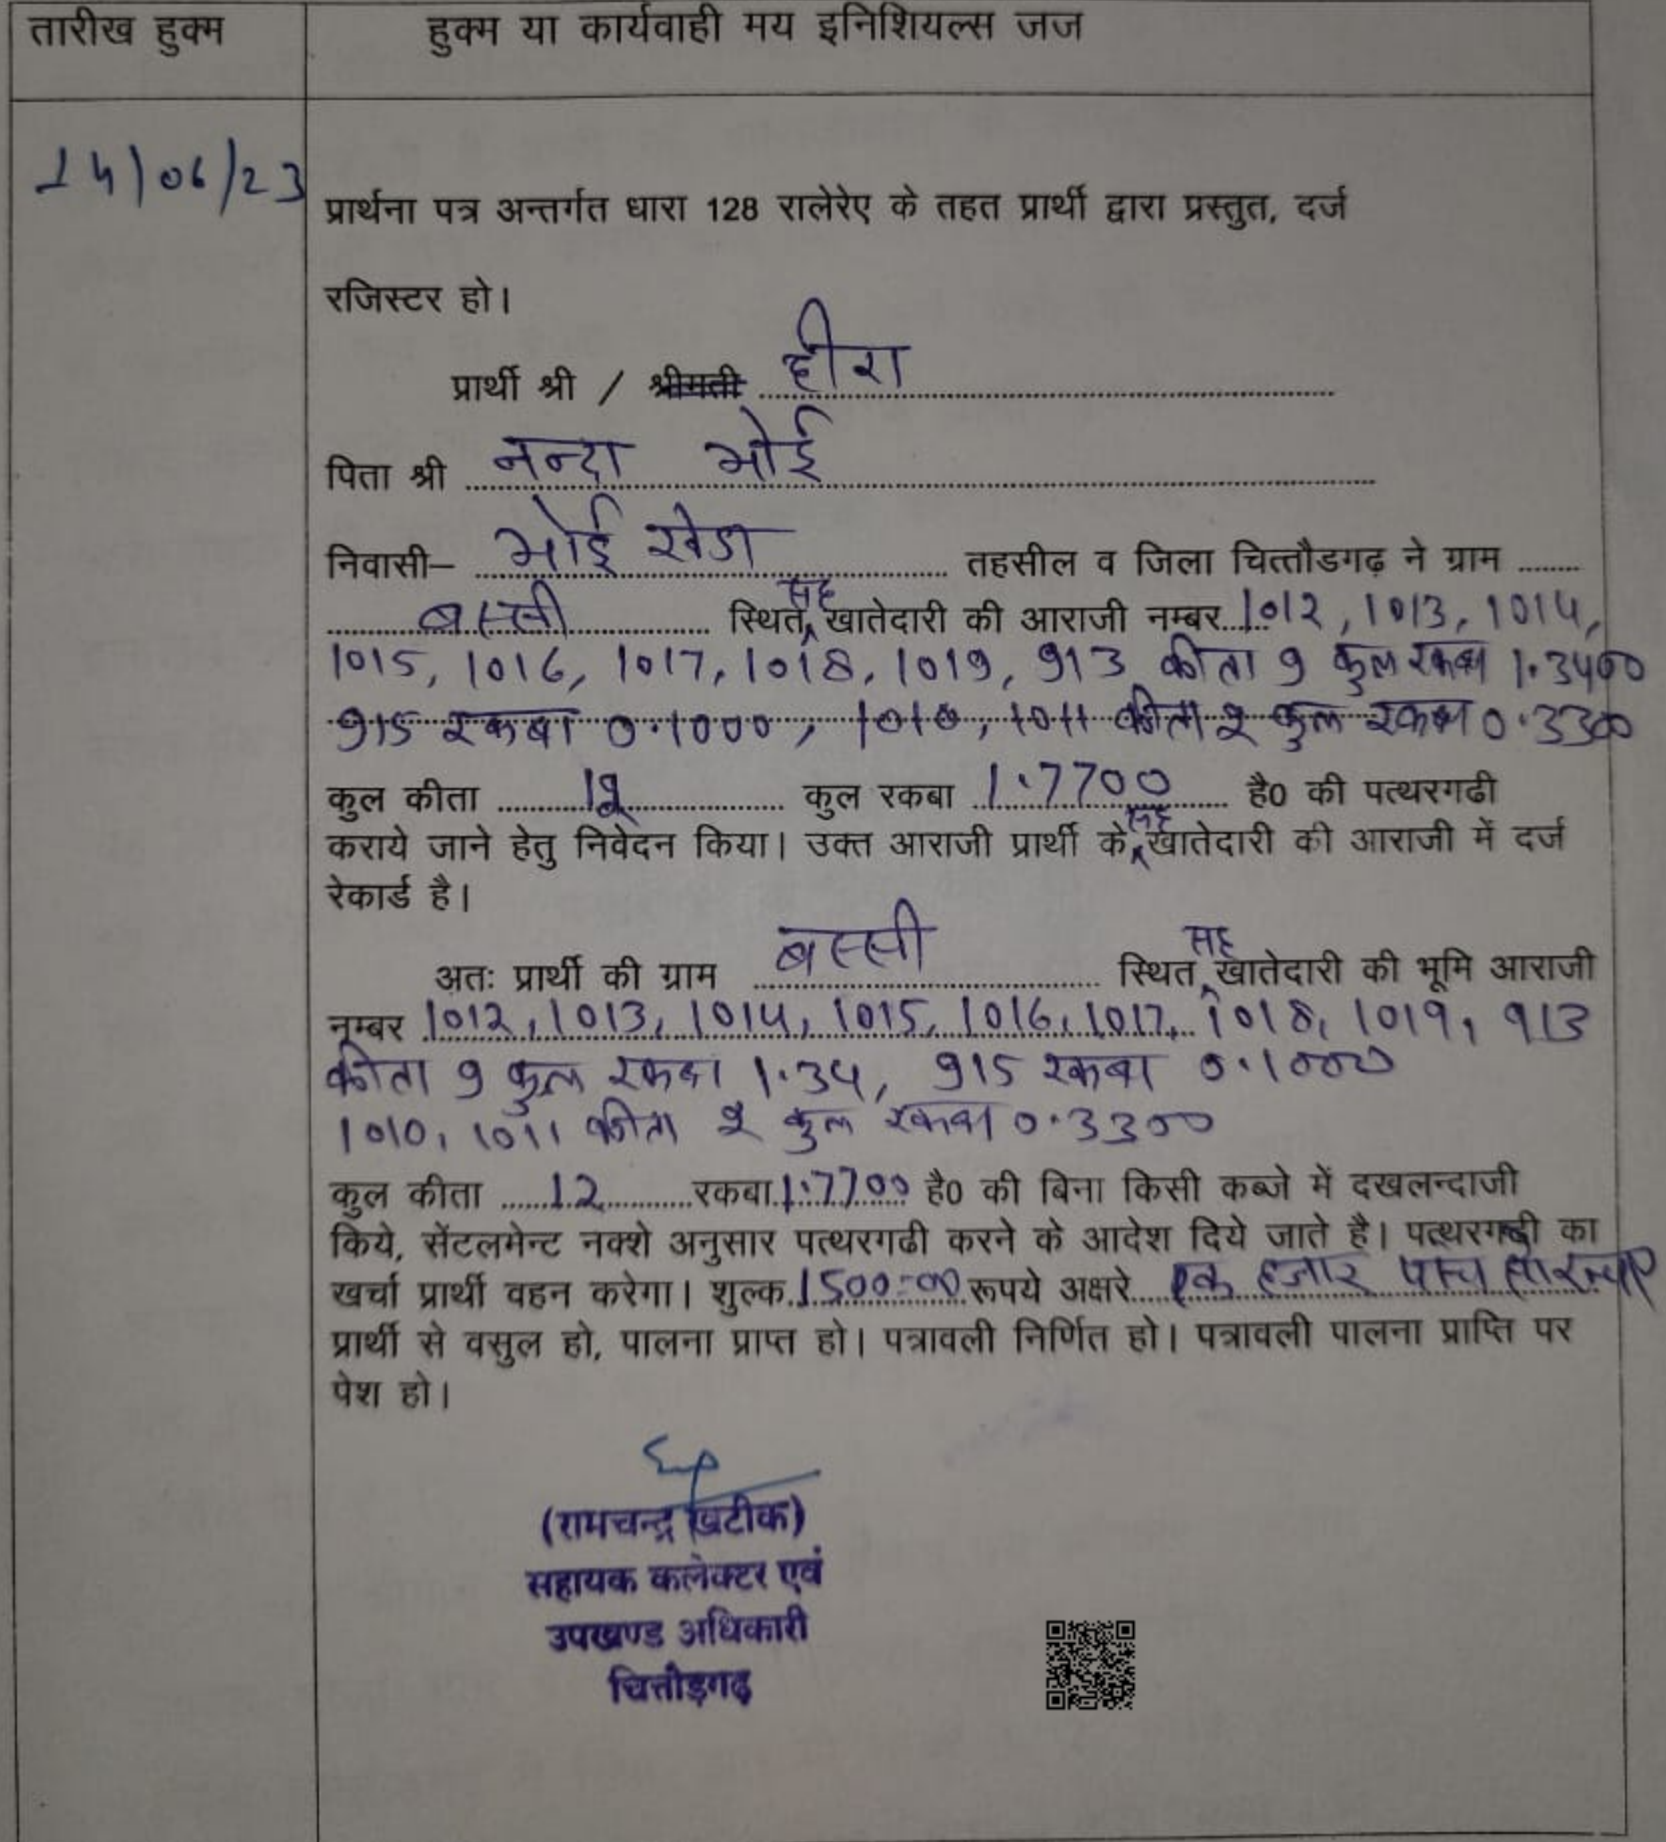 तारीख हुक्म
हुक्म या कार्यवाही मय इनिशियल्स जज
14/06/23
प्रार्थना पत्र अन्तर्गत धारा 128 रालेरेए के तहत प्रार्थी द्वारा प्रस्तुत, दर्ज
रजिस्टर हो।
प्रार्थी श्री / श्रीमती हीरा
पिता श्री नन्दा भोई
निवासी– भोई खेडा तहसील व जिला चित्तौडगढ़ ने ग्राम
बस्सी स्थित सह खातेदारी की आराजी नम्बर 1012, 1013, 1014,
1015, 1016, 1017, 1018, 1019, 913 कीता 9 कुल रकबा 1.3400
915 रकबा 0.1000, 1010, 1011 कीता 2 कुल रकबा 0.3300
कुल कीता 12 कुल रकबा 1.7700 है0 की पत्थरगढी
कराये जाने हेतु निवेदन किया। उक्त आराजी प्रार्थी के सह खातेदारी की आराजी में दर्ज
रेकार्ड है।
अतः प्रार्थी की ग्राम बस्सी स्थित सह खातेदारी की भूमि आराजी
नम्बर 1012, 1013, 1014, 1015, 1016, 1017, 1018, 1019, 913
कीता 9 कुल रकबा 1.34, 915 रकबा 0.1000
1010, 1011 कीता 2 कुल रकबा 0.3300
कुल कीता 12 रकबा 1.7700 है0 की बिना किसी कब्जे में दखलन्दाजी
किये, सेंटलमेन्ट नक्शे अनुसार पत्थरगढी करने के आदेश दिये जाते है। पत्थरगढी का
खर्चा प्रार्थी वहन करेगा। शुल्क 1500=00 रूपये अक्षरे एक हजार पान्च
प्रार्थी से वसुल हो, पालना प्राप्त हो। पत्रावली निर्णित हो। पत्रावली पालना प्राप्ति पर
पेश हो।
(रामचन्द्र खटीक)
सहायक कलेक्टर एवं
उपखण्ड अधिकारी
चित्तौड़गढ़